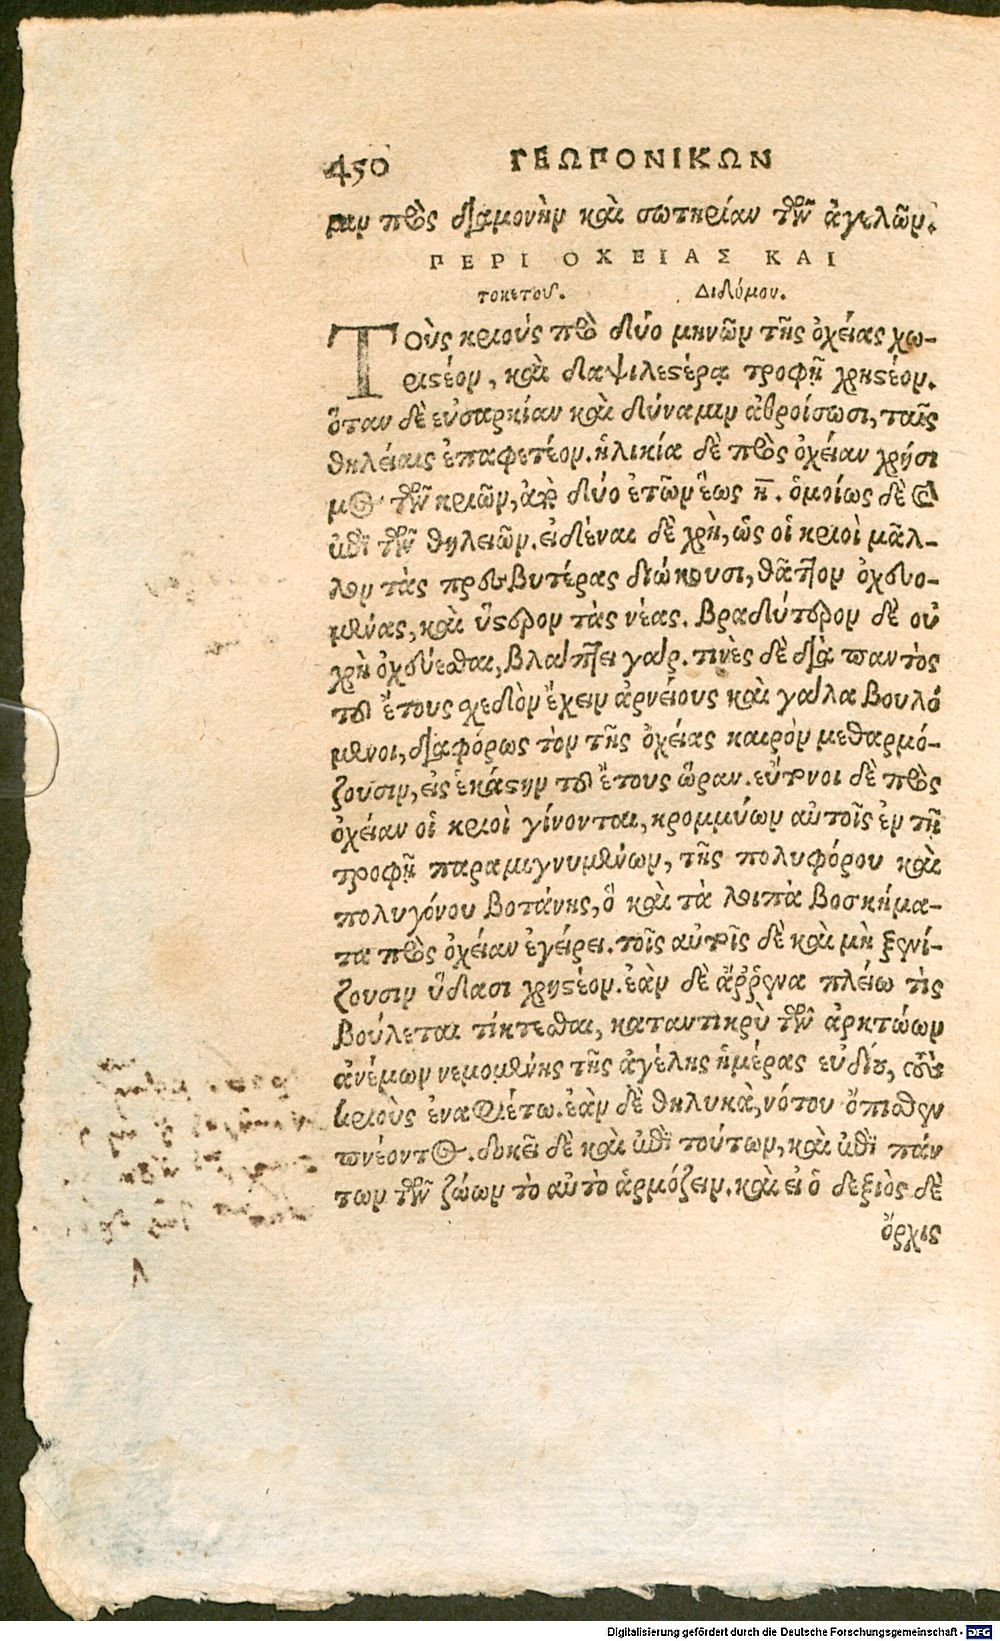 450 ΓΕΩΠΟΝΙΚΩΝ
ραν πρὸς διαμονὴν καὶ σωτηρίαν τῶν ἀγελῶν.
ΠΕΡΙ ΟΧΕΙΑΣ ΚΑΙ
τοκετοῦ. Διδύμου.
Τοὺς κριοὺς πρὸ δύο μηνῶν τῆς ὀχείας χω-
ριστέον, καὶ δαψιλεστέρᾳ τροφῇ χρηστέον.
ὅταν δὲ εὐσαρκίαν καὶ δύναμιν ἀθροίσωσι, ταῖς
θηλείαις ἐπαφετέον. ἡλικία δὲ πρὸς ὀχείαν χρήσι
μος τῶν κριῶν, ἀπὸ δύο ἐτῶν ἕως η. ὁμοίως δὲ καὶ
ἐπὶ τῶν θηλειῶν. εἰδέναι δὲ χρὴ, ὡς οἱ κριοὶ μᾶλ-
λον τὰς πρεσβυτέρας διώκουσι, θᾶττον ὀχευο-
μένας, καὶ ὕστερον τὰς νέας. βραδύτερον δὲ οὐ
χρὴ ὀχεύεσθαι, βλάπτει γάρ. τινὲς δὲ διὰ παντὸς
τοῦ ἔτους σχεδὸν ἔχειν ἀρνείους καὶ γάλα βουλό
μενοι, διαφόρως τὸν τῆς ὀχείας καιρὸν μεθαρμό-
ζουσιν, εἰς ἑκάστην τοῦ ἔτους ὥραν. εὔτονοι δὲ πρὸς
ὀχείαν οἱ κριοὶ γίνονται, κρομμύων αὐτοῖς ἐν τῇ
τροφῇ παραμιγνυμένων, τῆς πολυφόρου καὶ
πολυγόνου βοτάνης, ὃ καὶ τὰ λοιπὰ βοσκήμα-
τα πρὸς ὀχείαν ἐγείρει. τοῖς αὐτοῖς δὲ καὶ μὴ ξενί-
ζουσιν ὕδασι χρηστέον. ἐὰν δὲ ἄῤῥενα πλείω τὶς
βούλεται τίκτεσθαι, καταντικρὺ τῶν ἀρκτώων
ἀνέμων νεμομένης τῆς ἀγέλης ἡμέρας εὐδίου, τοὺς
κριοὺς ἐναφιέτω. ἐὰν δὲ θηλυκὰ, νότου ὄπισθεν
πνέοντος. δοκεῖ δὲ καὶ ἐπὶ τούτων, καὶ ἐπὶ πάν
των τῶν ζώων τὸ αὐτὸ ἁρμόζειν. καὶ εἰ ὁ δεξιὸς δὲ
ὄρχις
Digitalisierung gefördert durch die Deutsche Forschungsgemeinschaft - DFG